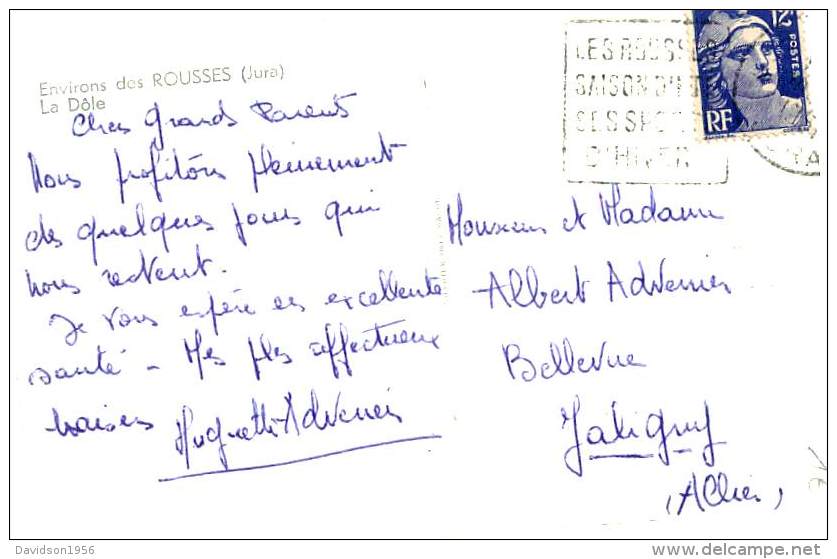 Environs des ROUSSES (Jura)
La Dôle
Chers Grands Parents
Nous profitons pleinement
des quelques jours qui
nous restent.
Je vous espère en excellente
santé - Mes plus affectueux
baisers Huguette Advenier
LES ROUSSES
SAISON D'ÉTÉ
SES SPORTS
D'HIVER
12F
POSTES
RF
Monsieur et Madame
Albert Advenier
Bellevue
Jaligny
(Allier)
Davidson1956
delcampe.net